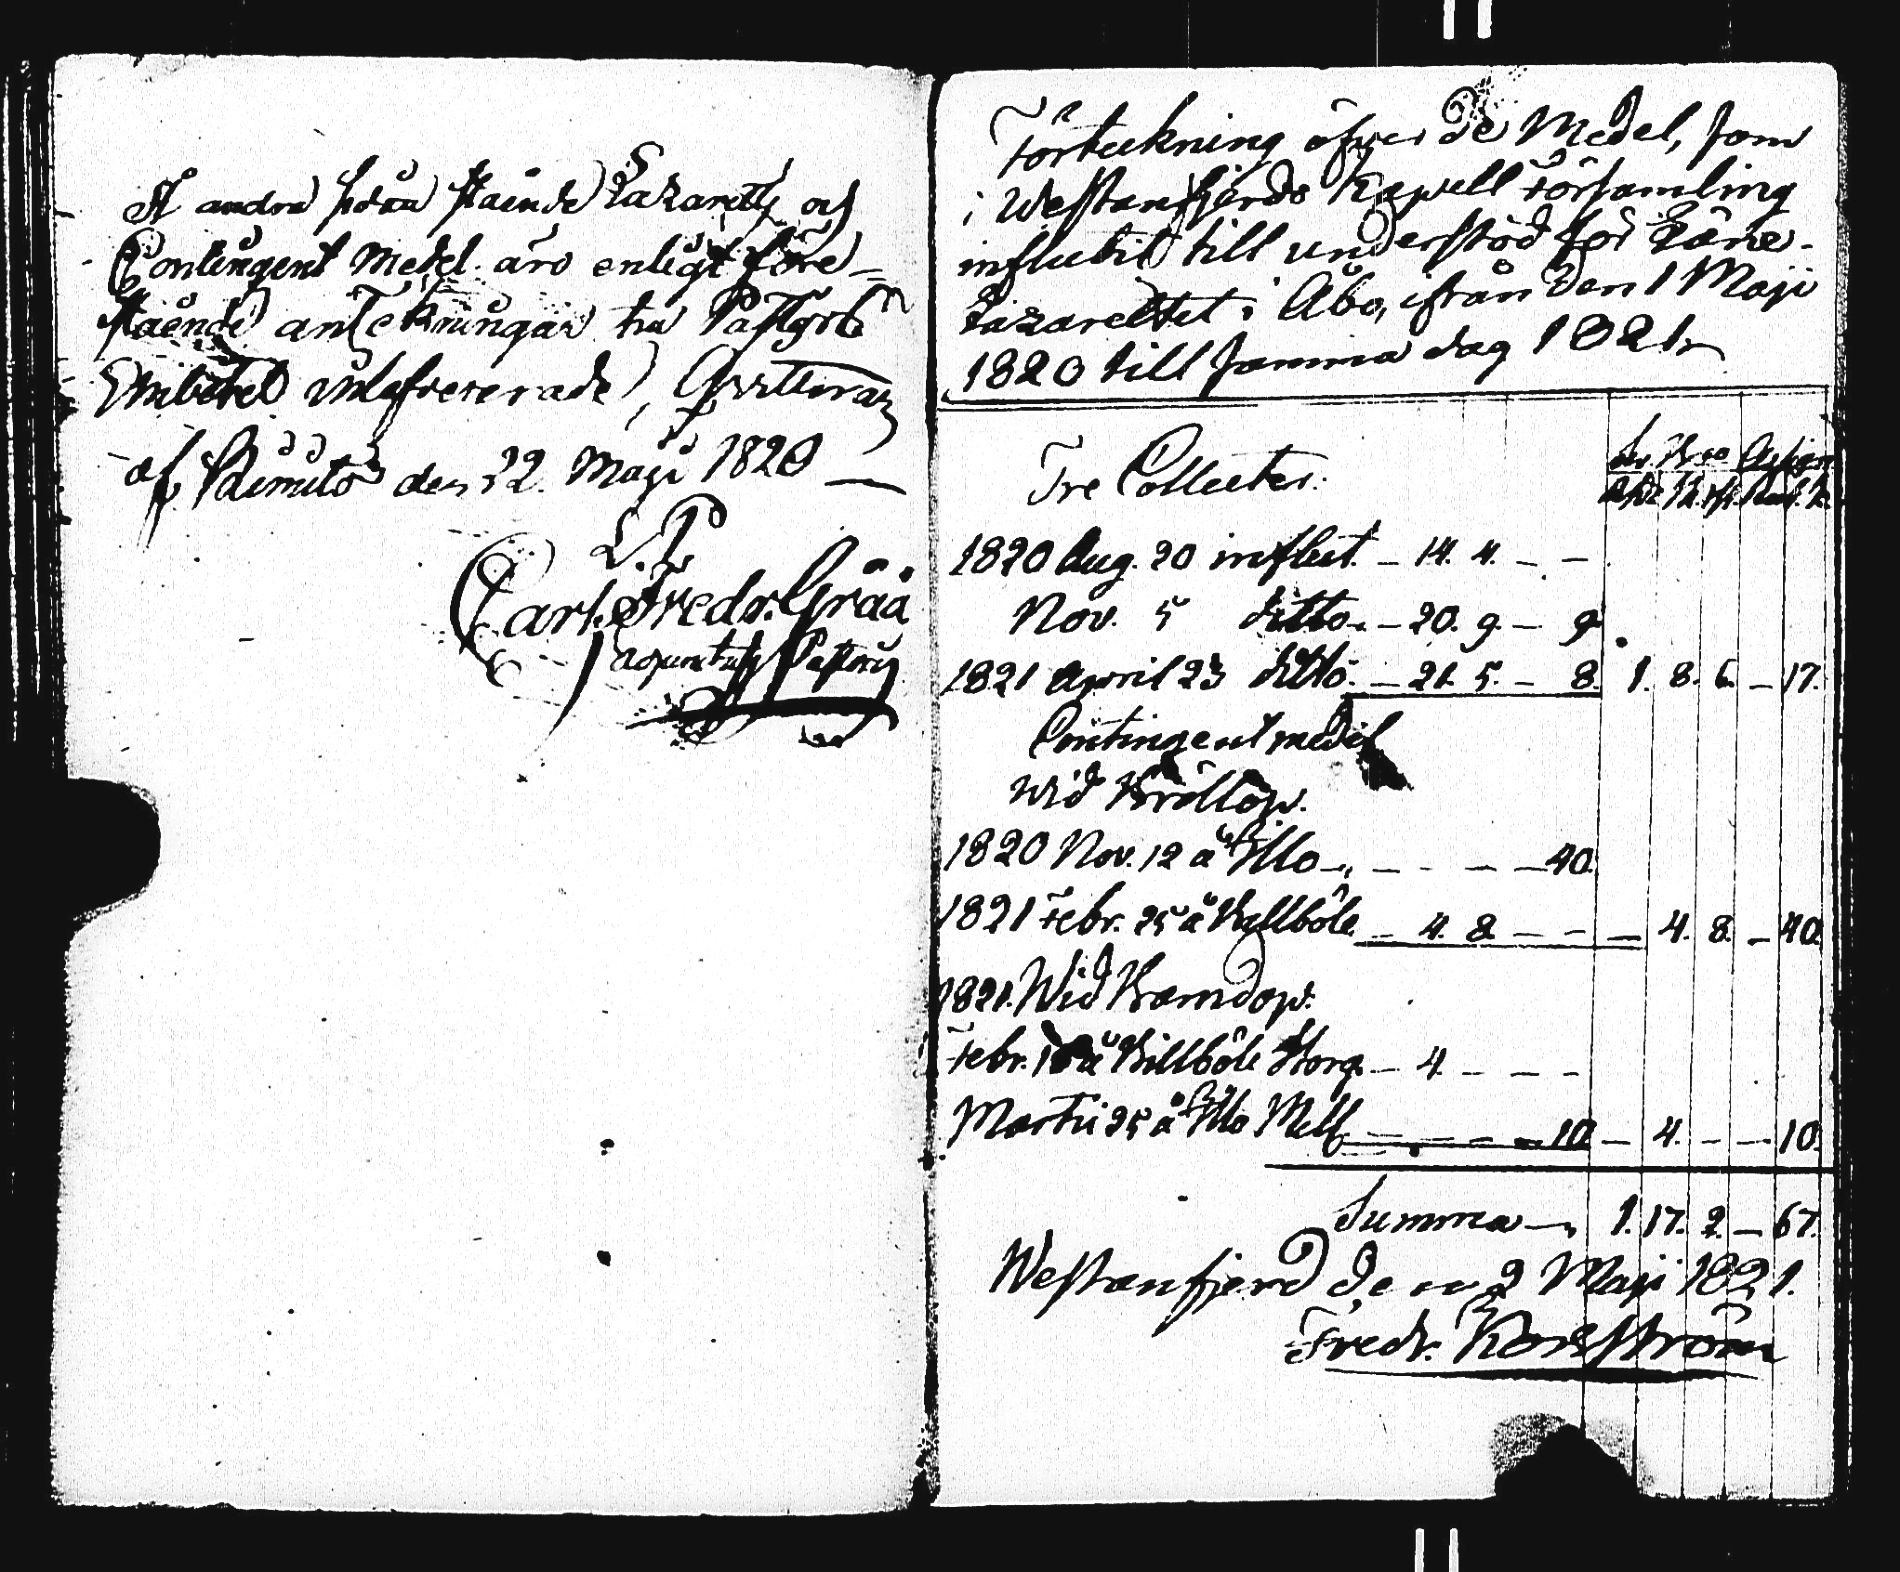 Å andra sidan stående Lazaretts och
Contingent Medel äro enligt före-
stående anteckningar till Past
Embetet inlefvererade, qvitteras
af Kimito den 22 Maji 1820
Carl Fredr. Gråå
adjunctus Pastoris
Förteckning öfver de Medel, som
i Westanfjerds Kapell Församling
influtit till understöd för Läns-
Lazarettet i Åbo, ifrån den 1 Maji
1820 till samma dag 1821.
Tre Collecter.
1820 Aug. 20 influt. – 14. 4. – –
Nov. 5 ditto. – 20. 9. – 9.
1821 April 23 ditto. – 21. 5. – 8. 1. 8. 6. – 17.
Contingent medel
wid Bröllop.
1820 Nov. 12 å – – – – 40.
1821 Febr. 25 å Kallböle – 4. 8. – – – 4. 8. – 40.
1821. Wid Barndop.
Febr. å Billböle Storg. – 4. – – –
Martii 25 å Mell – – – – 10. – 4. – – 10.
Summa – 1. 17. 2. – 67.
Westanfjerd den 2 Maji 1821.
Fredr. Korsström